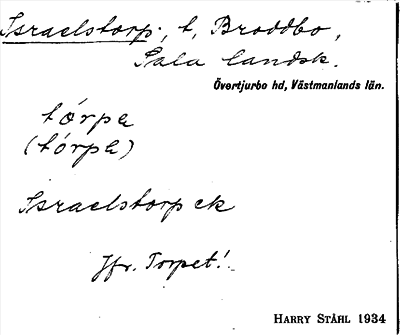 Israelstorp, t, Broddbo,
Sala landsk.
Övertjurbo hd, Västmanlands län.
tórpɐ
(tórpɐ)
Israelstorp ek
Jfr. Torpet!
HARRY STÅHL 1934